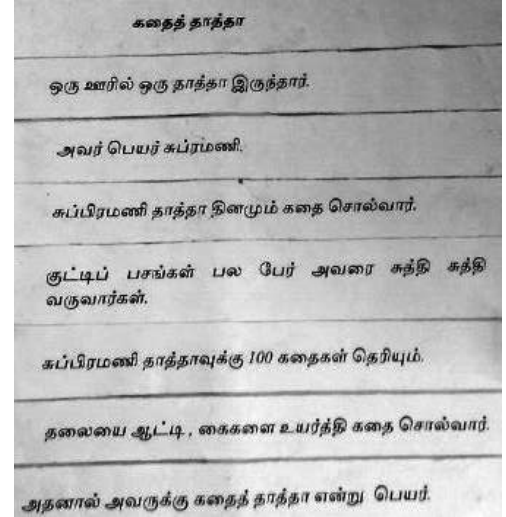 கதைத் தாத்தா
ஒரு ஊரில் ஒரு தாத்தா இருந்தார்.
அவர் பெயர் சுப்ரமணி.
சுப்பிரமணி தாத்தா தினமும் கதை சொல்வார்.
குட்டிப் பசங்கள் பல பேர் அவரை சுத்தி சுத்தி
வருவார்கள்.
சுப்பிரமணி தாத்தாவுக்கு 100 கதைகள் தெரியும்.
தலையை ஆட்டி , கைகளை உயர்த்தி கதை சொல்வார்.
அதனால் அவருக்கு கதைத் தாத்தா என்று பெயர்.